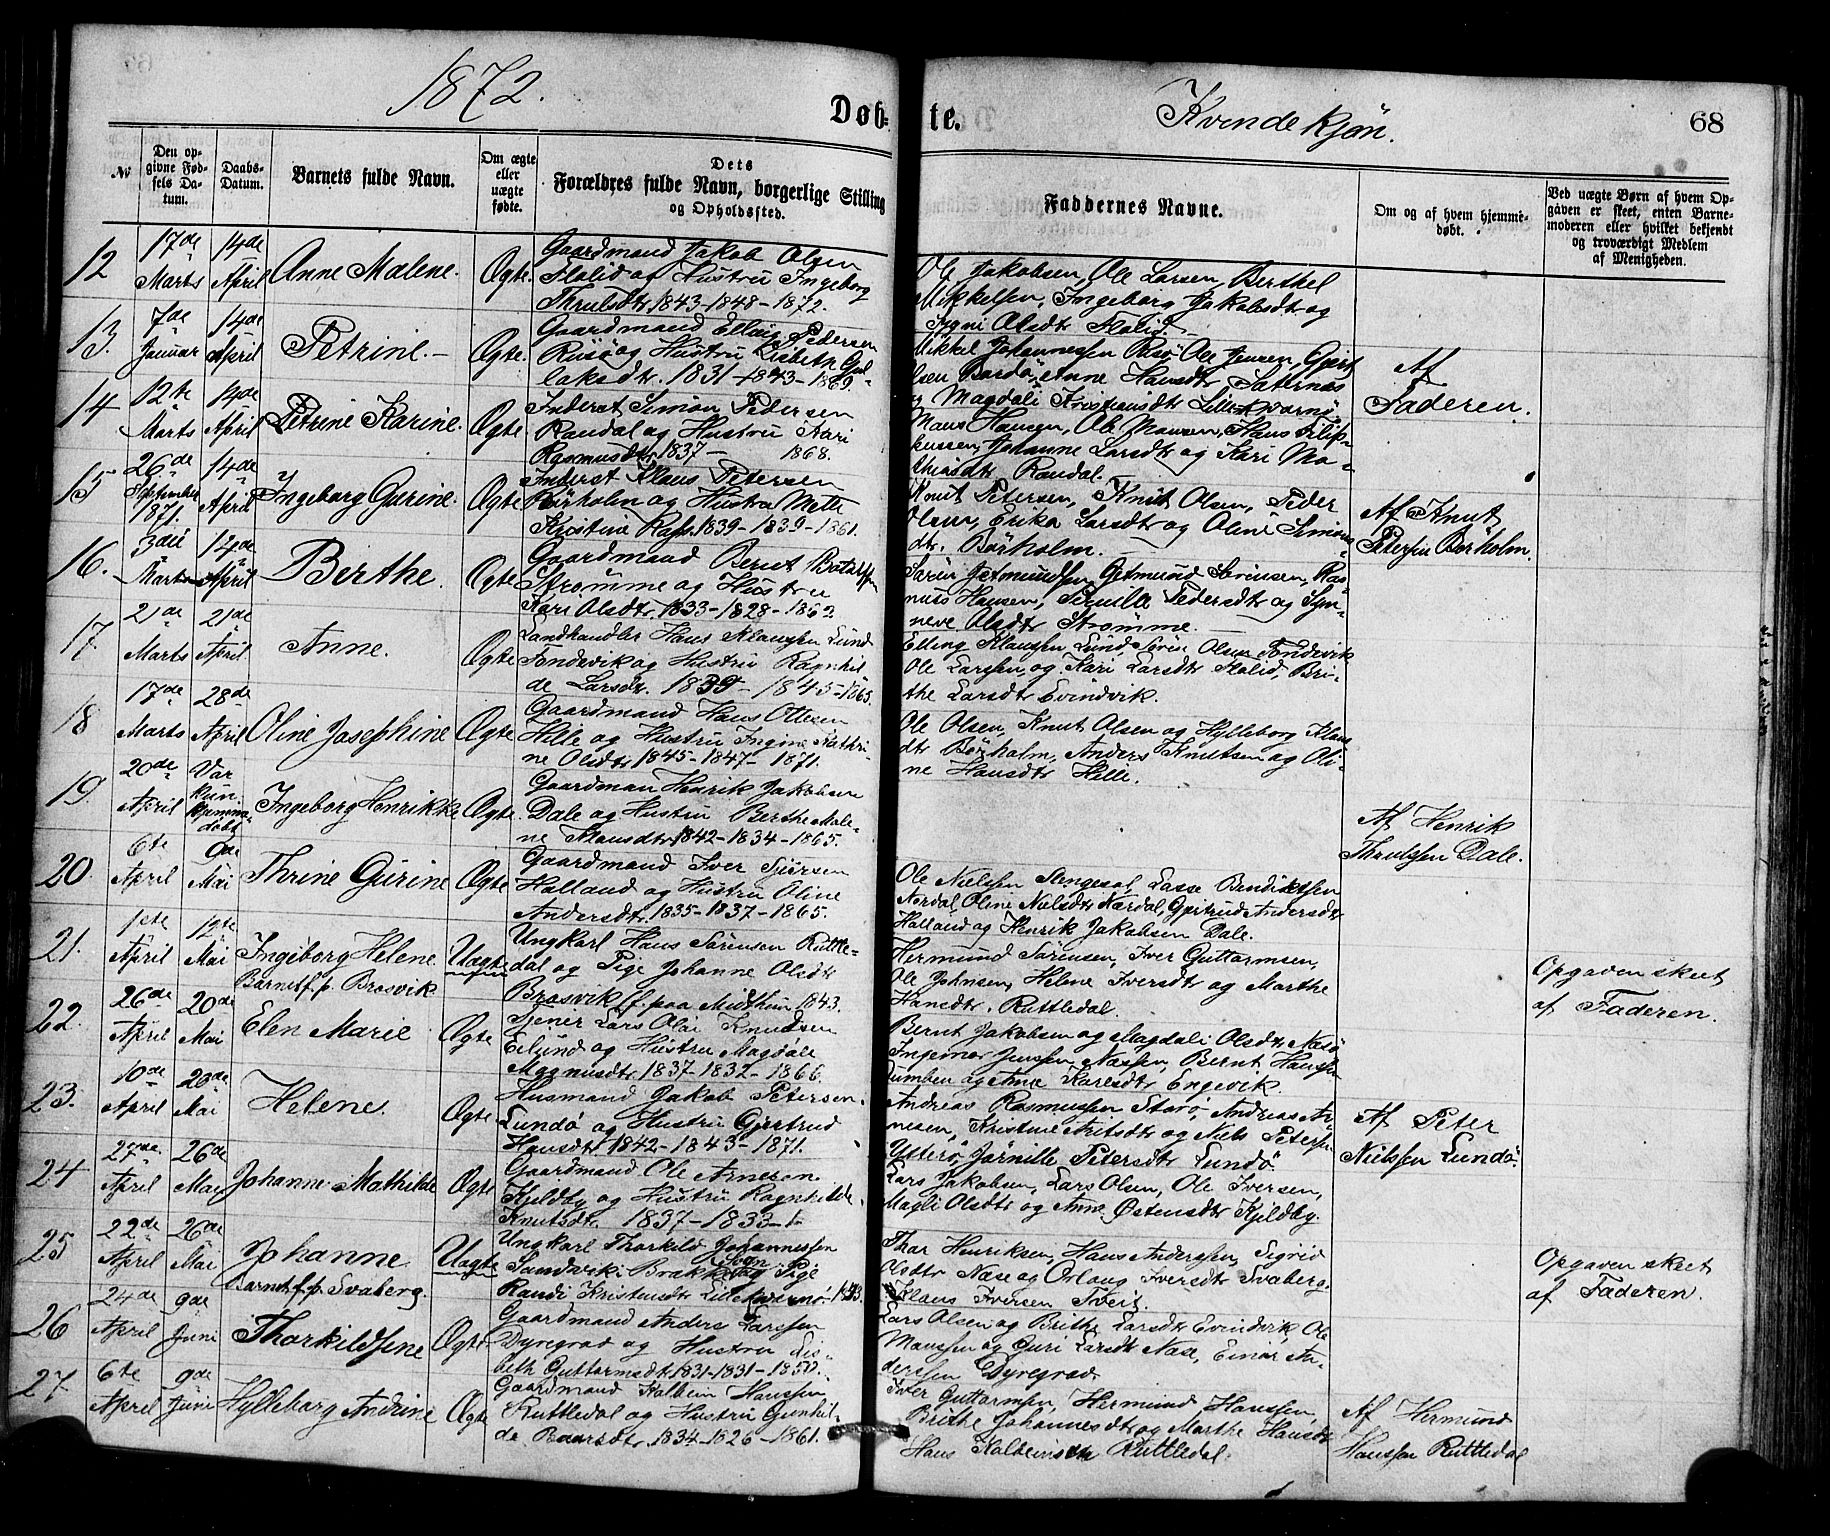 1872.
Døb-
te.
Kvindekjøn.
68
№
Den op-
givne Fød-
sels Da-
tum.
Daabs-
Datum.
Barnets fulde Navn.
Om ægte
eller
uægte
fødte.
Dets
Forældres fulde Navn, borgerlige Stilling
og Opholdssted.
Faddernes Navne.
Om og af hvem hjemme-
døbt.
Ved uægte Børn af hvem Op-
gaven er skeet, enten Barne-
moderen eller hvilket bekjendt
og troværdigt Medlem
af Menigheden.
12
17de
Marts
14de
April
Anne Malene.
Ægte.
Gaardmand Jakob Olsen
Flolid og Hustru Ingeborg
Thrulsdtr 1843-1848-1872.
Ole Jakobsen, Ole Larsen, Berthel
Mikkelsen, Ingeborg Jakobsdtr og
Olsdtr Flolid.
13.
7de
Januar
14de
April
Petrine.
Ægte
Gaardmand Elling Pedersen
og Hustru Lisbeth Gul-
laksdtr. 1831-1843-1869.
Mikkel Johannessen Ole Jensen,
Bardø, Anne Hansdtr
Magdali Kristiansdtr Lillekvarnø.
Af
Faderen.
14
12te
Marts
14de
April
Petrine Karine.
Ægte.
Inderst Simon Pedersen
Raudal og Hustru Kari
Rasmusdtr 1837- 1868.
Hansen, Ole Mansen, Hans Filip-
Johanne Larsdtr og Kari Ma-
thiasdtr Raudal.
15
26de
September
1871.
14de
April
Ingeborg Gurine.
Ægte
Inderst Klaus Petersen
Børholm og Hustru Mette
Kristine Rasm. 1839-1839-1861.
Knut Petersen, Knut Olsen, Peder
Olsen, Erika Larsdtr og Oline Simons-
dtr. Børholm.
Af Knut
Petersen Børholm.
16.
3die
Marts
12de
April
Berthe.
Ægte
Gaardmand Bernt
Strømme og Hustru
Kari Olsdtr. 1833-1828-1862
Sørin Jetmundsen, Getmund Sørensen, Ras-
mus Hansen, Pernille Pedersdtr og Syn-
neve Olsdtr Strømme.
17.
21de
Marts
21de
April
Anne.
Ægte
Landhandler Hans Klausen Lund
Fondevik og Hustru Ragnhil-
de Larsdtr. 1835-1845-1865.
Elling Klausen Lund, Søren Olsen Fondevik
Ole Larssen og Kari Larsdtr Flolid, Bri-
the Larsdtr Evindvik.
18
17de
Marts
28de
April
Oline Josephine
Ægte
Gaardmand Hans Ottesen
Hille og Hustru Ingine Kathri-
ne Olsdtr 1845-1847-1871.
Ole Olsen, Knut Olsen og Hylleborg Klaus-
dtr Børholm, Anders Knutsen og Oli-
ne Hansdtr Hille.
19.
20de
April
Var
kun
hjemme-
døbt
Ingeborg Henrikke
Ægte.
Gaardman Henrik Jakobsen
Dale og Hustru Berthe Male-
ne Mansdtr 1842-1834-1865.
Af Henrik
Thrulssen Dale.
20.
6te
April
9de
Mai
Thrine Gurine
Ægte
Gaardmand Iver Sjursen
Halland og Hustru Oline
Andersdtr. 1835-1837-1865.
Ole Nielssen Stengesal, Lasse Bendiktsen
Nordal, Oline Nielsdtr Nærdal, Gjertrud Andersdtr
Halland og Henrik Jakobsen Dale.
21.
1ste
April
12te
Mai
Ingeborg Helene
Barnet f.p. Brosvik
Uægte
Ungkarl Hans Sørensen Ruttle-
dal og Pige Johanne Olsdtr
Brosvik f. paa Midthun 1843.
Hermund Sørensen, Iver Guttormsen,
Ole Johnsen, Helene Iversdtr og Marthe
Hansdtr. Ruttledal.
Opgaven skeet
af Faderen.
22.
26de
April
20de
Mai
Elen Marie
Ægte
Tjener Lars Olai Knudsen
Eilund og Hustru Magdale
Magnusdtr. 1837-1832-1866.
Bernt Jakobsen og Magdali Olsdtr Næsø
Ingemar Jenssen Næssen, Bernt Hanssen
og Anne Karlsdtr Engevik.
23.
10de
April
20de
Mai
Helene.
Ægte
Husmand Jakob Petersen
Lundø og Hustru Gjertrud
Hansdtr 1842-1843-1871.
Andreas Rasmussen Storø, Andreas Ar-
nesen, Kristine Antsdtr og Niels Petersen
Ytterø, Jørnille Petersdtr Lundø.
Af Peter
Nielssen Lundø.
24
27de
April
26de
Mai
Johanne Mathilde
Ægte
Gaardmand Ole Arnesen
Kjeldby og Hustru Ragnhilde
Knutsdtr 1837-1833-
Lars Jakobsen, Lars Olsen, Ole Iversen,
Magli Olsdtr og Anne Østensdtr Kjeldby.
25
22de
April
26de
Mai
Johanne
Barnet f.p. Svaberg.
Uægte
Ungkarl Thorkild Johannessen
Sandvik i Brække Sogn og Pige
Randi Kristensdtr Lillekvarnø. 1843.
Thor Henriksen, Hans Anderssen, Sigrid
Olsdtr Næse og Orlaug Iversdtr Svaberg,
Klaus Iversen Tveit.
Opgaven skeet
af Faderen.
26
24de
April
9de
Juni
Thorkildsine
Ægte
Gaardmand Anders Larssen
Dyregrad og Hustru Lis-
beth Guttormsdtr 1831-1831-1857.
Lars Olsen og Brithe Larsdtr Evindvik, Ole
Manssen og Guri Larsdtr Næse, Einar An-
derssen Dyregrad.
27.
6te
April
9de
Juni
Hylleborg Andrine
Ægte
Gaardmand Kolbein Hanssen
Ruttledal og Hustru Gunhil-
de Baarsdtr. 1834-1826-1861.
Iver Guttormsen, Hermund Hanssen,
Brithe Johannesdtr og Marthe Hansdtr
Hans Kolbeinsen Ruttledal.
Af Hermund
Hanssen Ruttledal